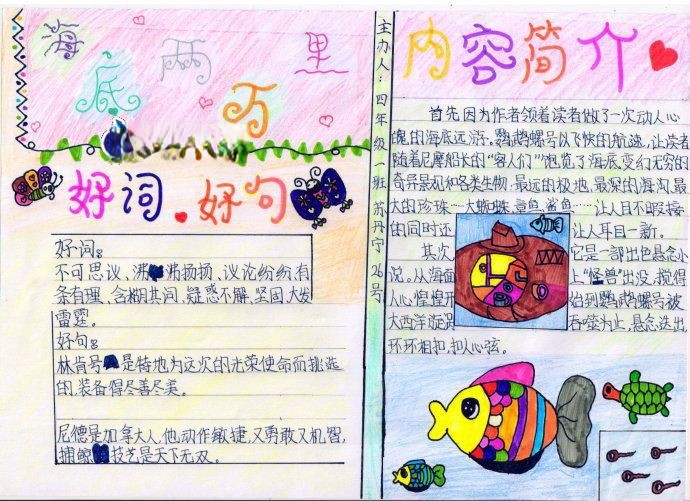 海底两万里
好词好句
好词:
不可思议、沸沸扬扬、议论纷纷、有
条有理、含糊其词、疑惑不解、坚固、大发
雷霆。
好句:
林肯号是特地为这次的光荣使命而挑选
的,装备得尽善尽美。
尼德是加拿大人,他动作敏捷,又勇敢又机智,
捕鲸技艺是天下无双。
主办人:四年级一班 苏丹宁 26号
内容简介
首先因为作者领着读者做了一次动人心
魄的海底远游:鹦鹉螺号以飞快的航速,让读者
随着尼摩船长的“客人们”饱览了海底变幻无穷的
奇异景观和各类生物。最远的极地,最深的海沟,最
大的珍珠……大蜘蛛、章鱼、鲨鱼……让人目不暇接
的同时还 让人耳目一新。
其次 它是一部出色悬念小
说。从海面 上“怪兽”出没,搅得
人心惶惶开 始到鹦鹉螺号被
大西洋旋涡 吞噬为止,悬念迭出,
环环相扣,扣人心弦。